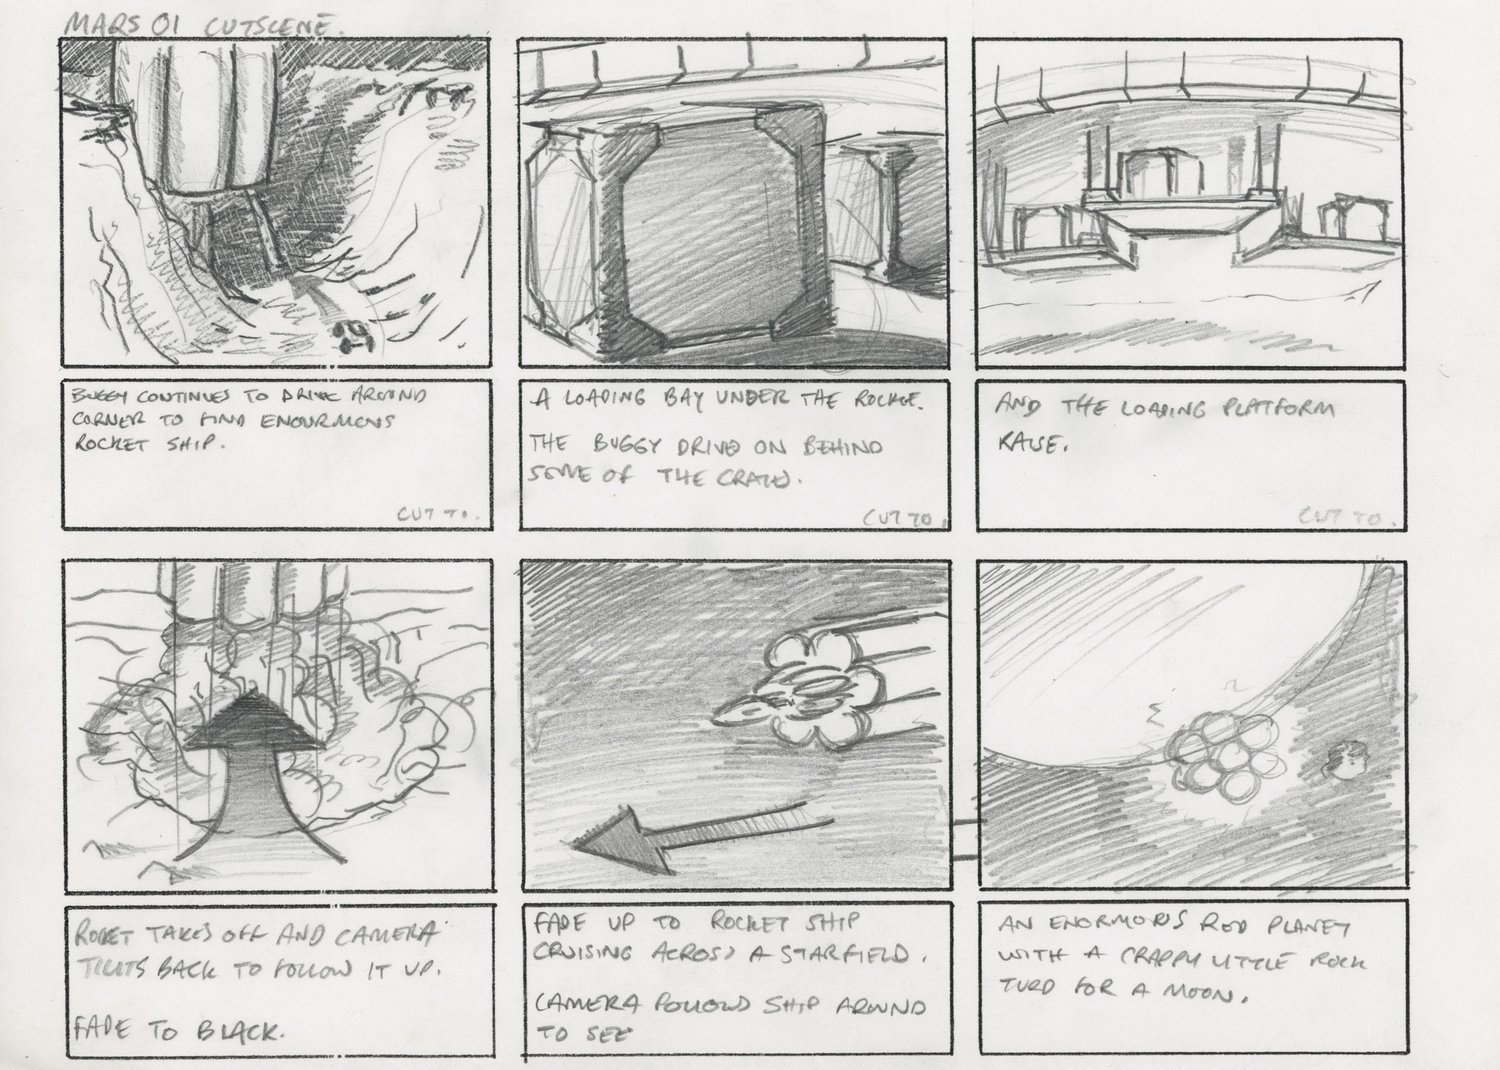 MARS 01 CUTSCENE.
BUGGY CONTINUES TO DRIVE AROUND
CORNER TO FIND ENOURMOUS
ROCKET SHIP.
CUT TO.
A LOADING BAY UNDER THE ROCKET.
THE BUGGY DRIVES ON BEHIND
SOME OF THE CRATES.
CUT TO.
AND THE LOADING PLATFORM
RAISE.
CUT TO.
ROCKET TAKES OFF AND CAMERA
TILTS BACK TO FOLLOW IT UP.
FADE TO BLACK.
FADE UP TO ROCKET SHIP
CRUISING ACROSS A STARFIELD.
CAMERA FOLLOWS SHIP AROUND
TO SEE
AN ENORMOUS RED PLANET
WITH A CRAPPY LITTLE ROCK
TURD FOR A MOON.